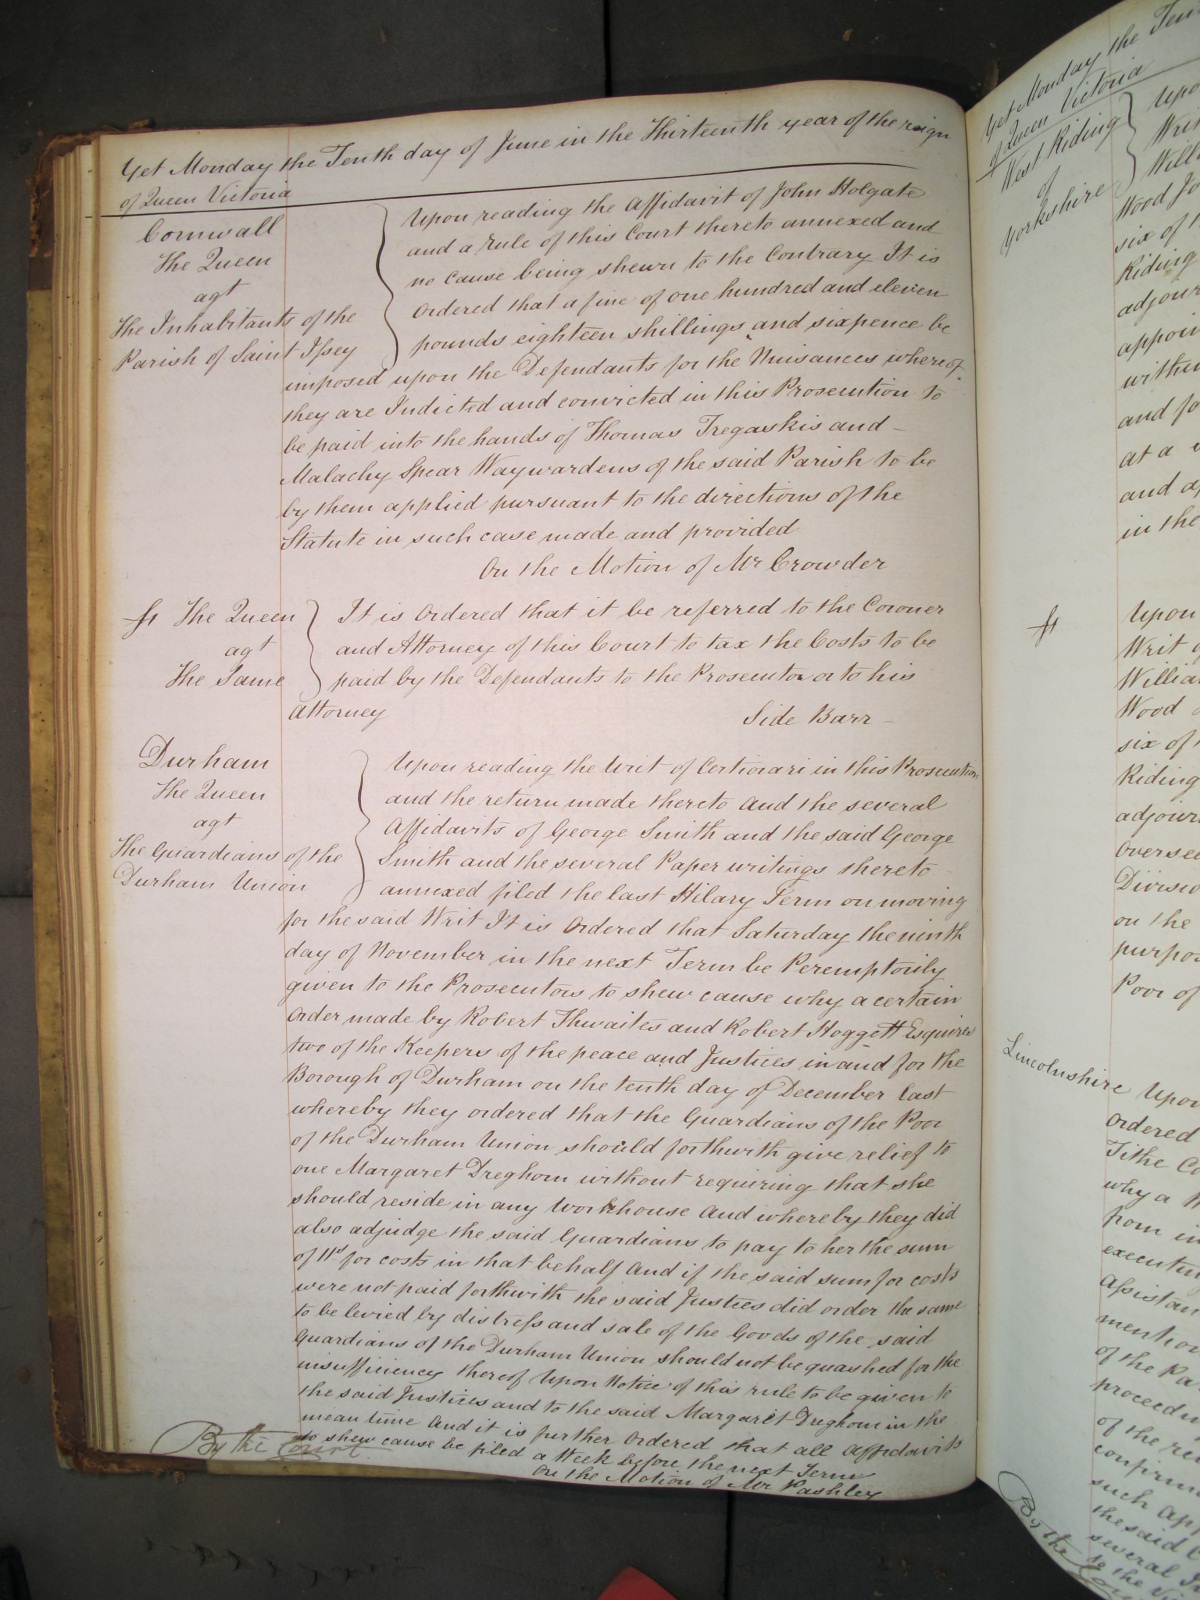 Yet Monday the Tenth day of June in the Thirteenth year of the reign
of Queen Victoria
Cornwall
The Queen
agt
The Inhabitants of the
Parish of Saint Issey
Upon reading the Affidavit of John Holgate
and a Rule of this Court thereto annexed and
no cause being shewn to the Contrary It is
Ordered that a fine of one hundred and eleven
pounds eighteen shillings and sixpence be
imposed upon the Defendants for the Nuisances whereof
they are Indicted and convicted in this Prosecution to
be paid into the hands of Thomas Tregaskis and
Malachy Spear Waywardens of the said Parish to be
by them applied pursuant to the directions of the
Statute in such case made and provided
On the Motion of Mr Crowder
The Queen
agt
The Same
It is Ordered that it be referred to the Coroner
and Attorney of this Court to tax the Costs to be
paid by the Defendants to the Prosecutor or to his
Attorney
Side Barr
Durham
The Queen
agt
The Guardians of the
Durham Union
Upon reading the Writ of Certiorari in this Prosecution
and the return made thereto And the several
Affidavits of George Smith and the said George
Smith and the several Paper writings thereto
annexed filed the last Hilary Term on moving
for the said Writ It is Ordered that Saturday the ninth
day of November in the next Term be Peremptorily
given to the Prosecutors to shew cause why a certain
Order made by Robert Thwaites and Robert Hoggett Esquires
two of the Keepers of the peace and Justices in and for the
Borough of Durham on the tenth day of December last
whereby they ordered that the Guardians of the Poor
of the Durham Union should forthwith give relief to
one Margaret Dreghorn without requiring that she
should reside in any Workhouse And whereby they did
also adjudge the said Guardians to pay to her the sum
of 11s for costs in that behalf And if the said sum for costs
were not paid forthwith the said Justices did order the same
to be levied by distress and sale of the Goods of the said
Guardians of the Durham Union should not be quashed for the
insufficiency thereof Upon Notice of this rule to be given to
the said Justices and to the said Margaret Dreghorn in the
mean time And it is further Ordered that all Affidavits
to shew cause be filed a Week before the next Term
On the Motion of Mr Pashley
By the Court
Yet Monday the Ten
of Queen Victoria
West Riding
of
Yorkshire
Upo
Writ
Willi
Wood Jo
six of
Riding
adjour
appoin
within
and fo
at a
and a
in the
Upon
Writ o
Willia
Wood
six of
Riding
adjour
Oversee
Divisio
on the
purpos
Poor of
Lincolnshire
Upon
Ordered
Tithe Co
why a
from in
executin
Assistan
mention
of the Pa
proceedi
of the
confirm
such App
the said
several
to the
By the Cou